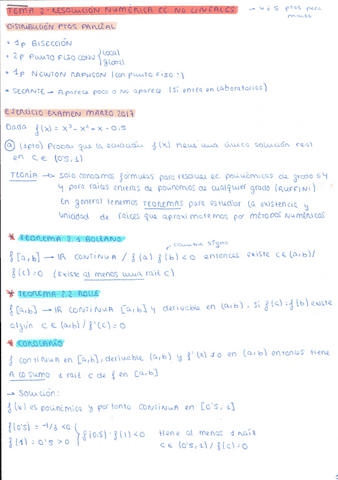 TEMA 2 - RESOLUCIÓN NUMÉRICA EC NO LINEALES → 4 ó 5 ptos para marzo
DISTRIBUCIÓN PTOS PARCIAL
• 1p BISECCIÓN
• 2p PUNTO FIJO CONV { local global
• 1p NEWTON RAPHSON (con punto FIJO!)
• SECANTE → Aparece poco o no aparece (Sí entra en Laboratorios)
EJERCICIO EXAMEN MARZO 2017
Dada f(x) = x³ - x² + x - 0.5
a) (1pto) Probar que la ecuación f(x) tiene una única solución real
en c ∈ (0'5, 1)
TEORÍA → solo conocemos fórmulas para resolver ec polinómicas de grado ≤ 4
y para raíces enteras de polinomios de cualquier grado (RUFFINI)
En general tenemos TEOREMAS para estudiar la existencia y
unicidad de raíces que aproximaremos por métodos numéricos
* TEOREMA 2.1 BOLZANO
cambia signo
f[a,b] → ℝ CONTINUA / f(a) f(b) < 0 entonces existe c ∈ (a,b) /
f(c) = 0 (existe al menos una raíz c)
* TEOREMA 2.2 ROLLE
f[a,b] → ℝ CONTINUA [a,b] y derivable en (a,b). Si f(a) = f(b) existe
algún c ∈ (a,b) / f'(c) = 0
* COROLARIO
f continua en [a,b], derivable (a,b) y f'(x) ≠ 0 en (a,b) entonces tiene
A LO SUMO 1 raíz c de f en [a,b]
→ Solución:
f(x) es polinómica y por tanto CONTINUA en [0'5, 1]
f(0'5) = -1/8 < 0
f(1) = 0'5 > 0 } f(0.5) · f(1) < 0 tiene al menos 1 raíz
c ∈ (0'5, 1) / f(c) = 0